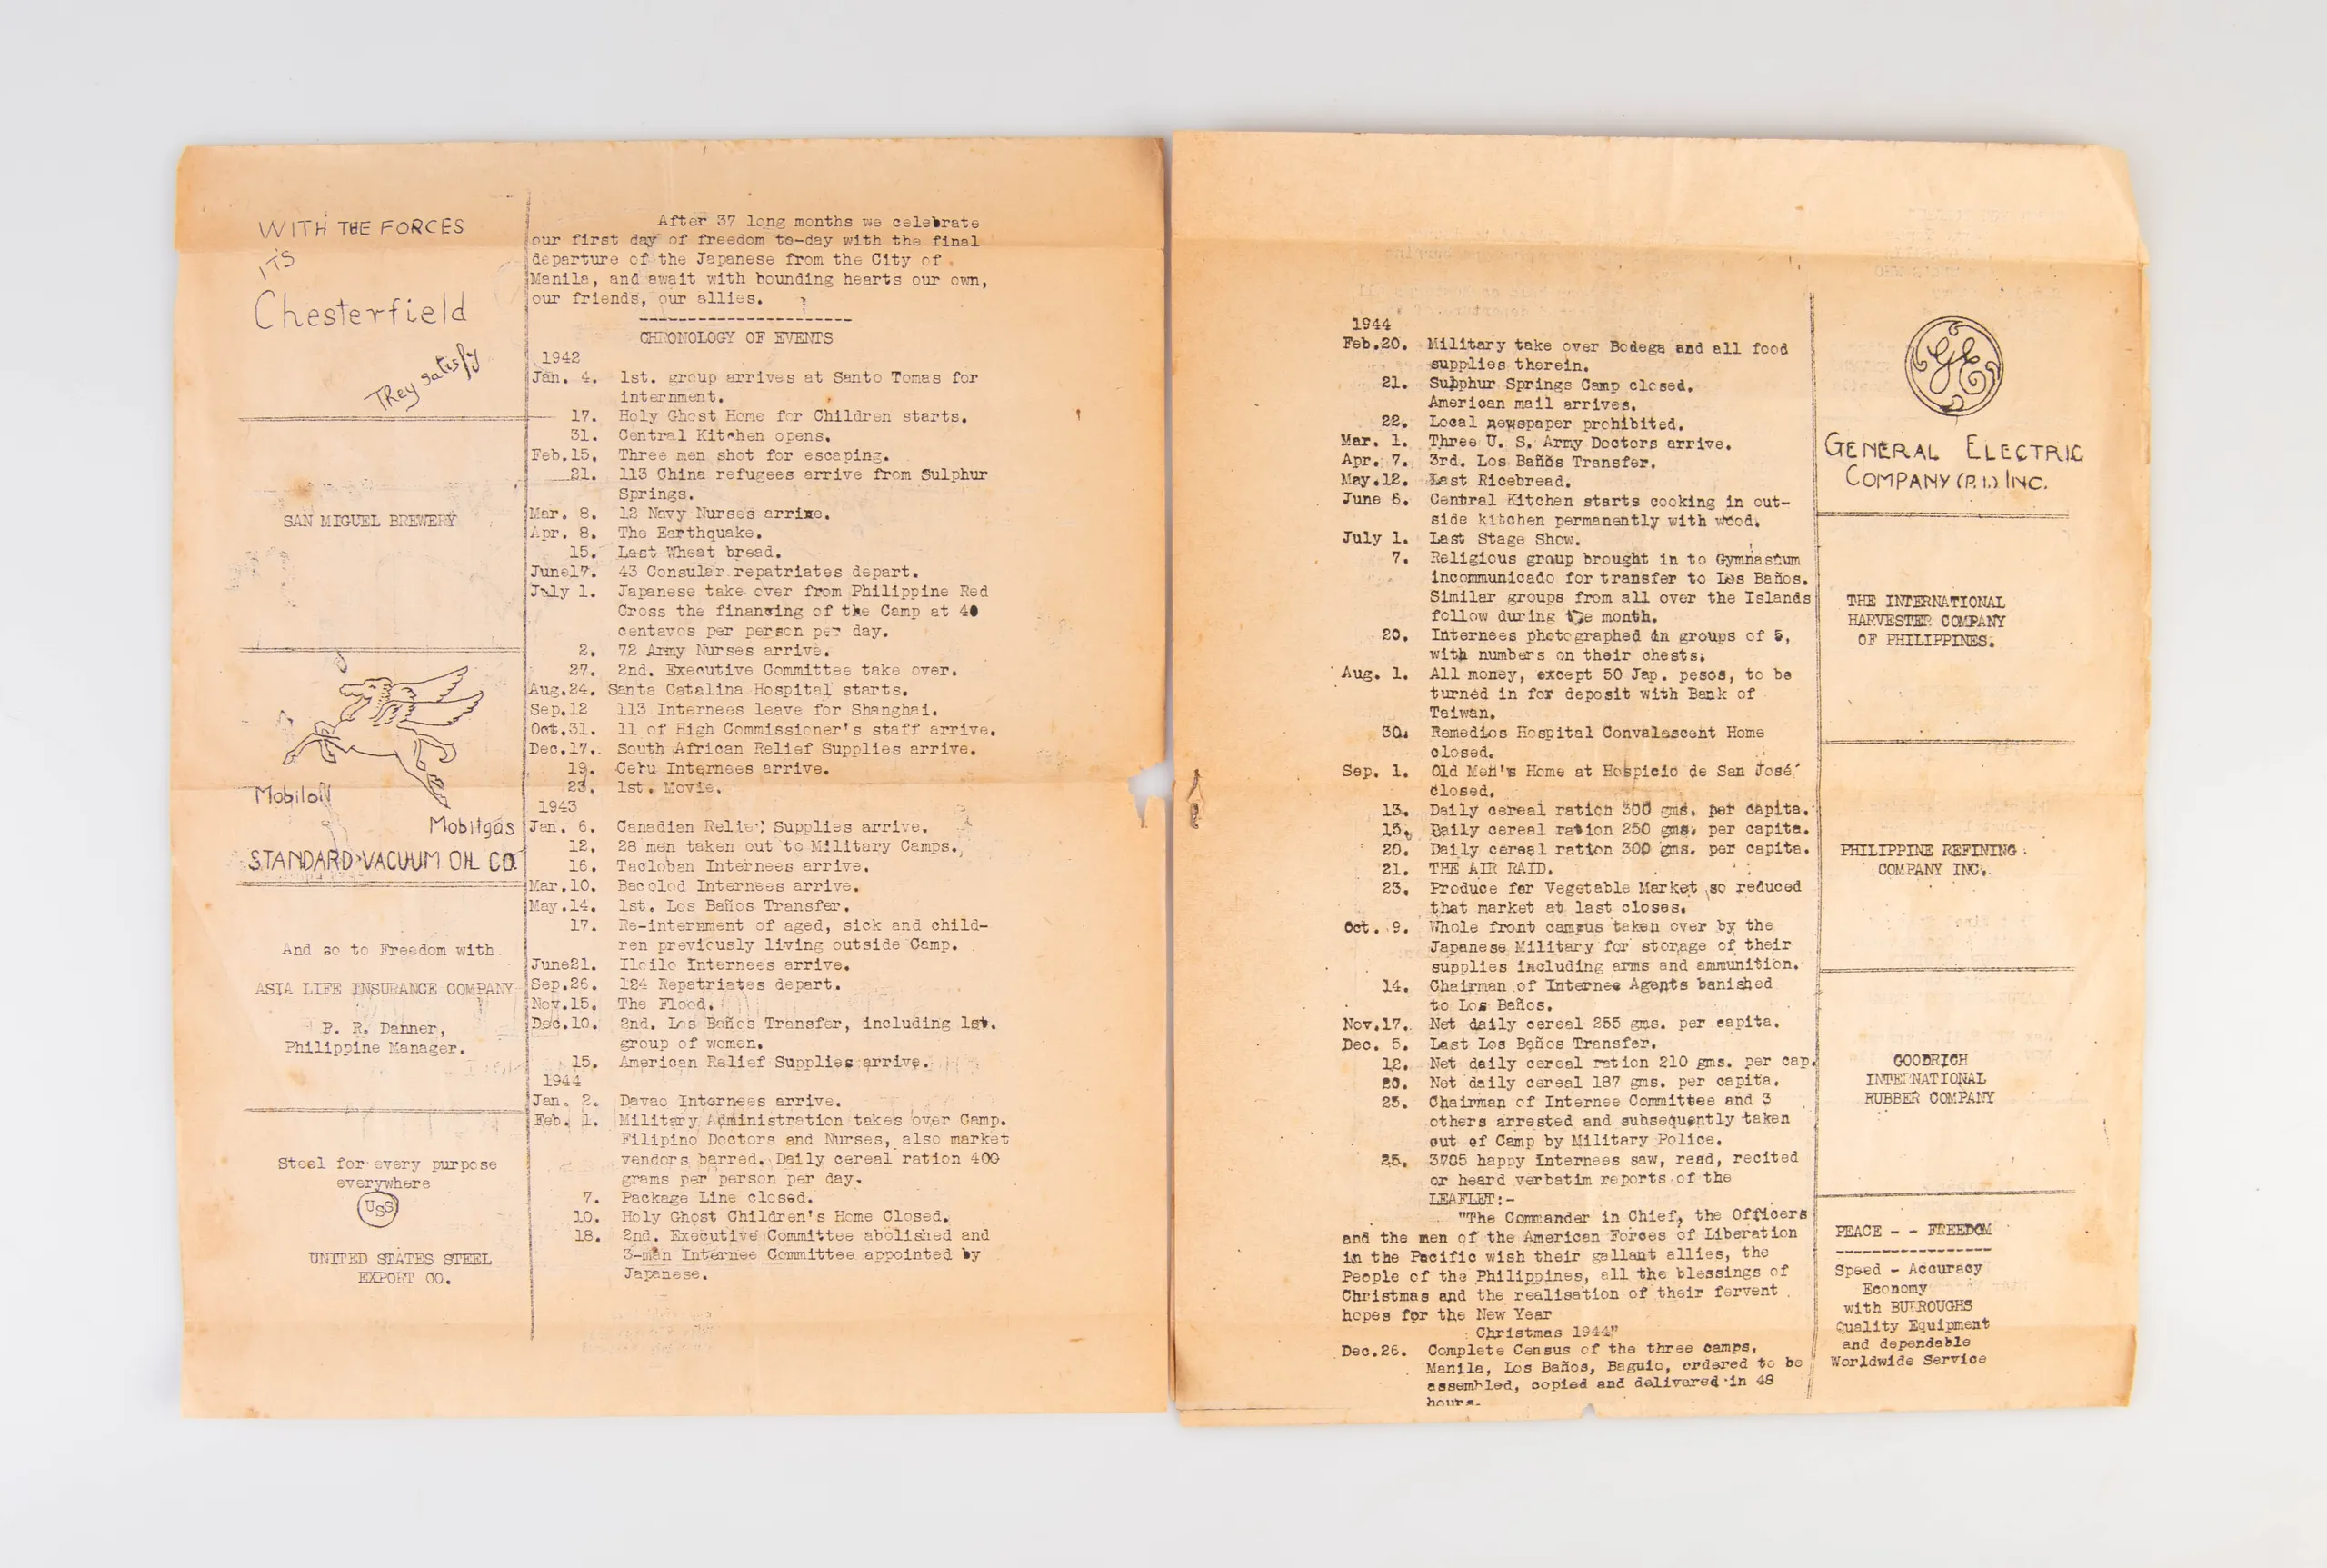 WITH THE FORCES
ITS
Chesterfield
They satisfy
SAN MIGUEL BREWERY
Mobiloil
Mobilgas
STANDARD VACUUM OIL CO.
And so to Freedom with
ASIA LIFE INSURANCE COMPANY
P. R. Danner,
Philippine Manager.
Steel for every purpose
everywhere
USS
UNITED STATES STEEL
EXPORT CO.
After 37 long months we celebrate
our first day of freedom to-day with the final
departure of the Japanese from the City of
Manila, and await with bounding hearts our own,
our friends, our allies.
----------------------
CHRONOLOGY OF EVENTS
1942
Jan. 4. 1st. group arrives at Santo Tomas for
internment.
17. Holy Ghost Home for Children starts.
31. Central Kitchen opens.
Feb.15. Three men shot for escaping.
21. 113 China refugees arrive from Sulphur
Springs.
Mar. 8. 12 Navy Nurses arrive.
Apr. 8. The Earthquake.
15. Last Wheat bread.
June17. 43 Consular repatriates depart.
July 1. Japanese take over from Philippine Red
Cross the financing of the Camp at 40
centavos per person per day.
2. 72 Army Nurses arrive.
27. 2nd. Executive Committee take over.
Aug.24. Santa Catalina Hospital starts.
Sep.12 113 Internees leave for Shanghai.
Oct.31. 11 of High Commissioner's staff arrive.
Dec.17. South African Relief Supplies arrive.
19. Cebu Internees arrive.
23. 1st. Movie.
1943
Jan. 6. Canadian Relief Supplies arrive.
12. 28 men taken out to Military Camps.
16. Tacloban Internees arrive.
Mar.10. Bacolod Internees arrive.
May.14. 1st. Los Baños Transfer.
17. Re-internment of aged, sick and child-
ren previously living outside Camp.
June21. Iloilo Internees arrive.
Sep.26. 124 Repatriates depart.
Nov.15. The Flood.
Dec.10. 2nd. Los Baños Transfer, including 1st.
group of women.
15. American Relief Supplies arrive.
1944
Jan. 2. Davao Internees arrive.
Feb. 1. Military Administration takes over Camp.
Filipino Doctors and Nurses, also market
vendors barred. Daily cereal ration 400
grams per person per day.
7. Package Line closed.
10. Holy Ghost Children's Home Closed.
18. 2nd. Executive Committee abolished and
3-man Internee Committee appointed by
Japanese.
1944
Feb.20. Military take over Bodega and all food
supplies therein.
21. Sulphur Springs Camp closed.
American mail arrives.
22. Local newspaper prohibited.
Mar. 1. Three U. S. Army Doctors arrive.
Apr. 7. 3rd. Los Baños Transfer.
May.12. Last Ricebread.
June 6. Central Kitchen starts cooking in out-
side kitchen permanently with wood.
July 1. Last Stage Show.
7. Religious group brought in to Gymnasium
incommunicado for transfer to Los Baños.
Similar groups from all over the Islands
follow during the month.
20. Internees photographed in groups of 5,
with numbers on their chests.
Aug. 1. All money, except 50 Jap. pesos, to be
turned in for deposit with Bank of
Taiwan.
30. Remedios Hospital Convalescent Home
closed.
Sep. 1. Old Men's Home at Hospicio de San José
closed.
13. Daily cereal ration 300 gms. per capita.
15. Daily cereal ration 250 gms. per capita.
20. Daily cereal ration 300 gms. per capita.
21. THE AIR RAID.
23. Produce for Vegetable Market so reduced
that market at last closes.
Oct. 9. Whole front campus taken over by the
Japanese Military for storage of their
supplies including arms and ammunition.
14. Chairman of Internee Agents banished
to Los Baños.
Nov.17. Net daily cereal 255 gms. per capita.
Dec. 5. Last Los Baños Transfer.
12. Net daily cereal ration 210 gms. per cap.
20. Net daily cereal 187 gms. per capita.
23. Chairman of Internee Committee and 3
others arrested and subsequently taken
out of Camp by Military Police.
25. 3785 happy Internees saw, read, recited
or heard verbatim reports of the
LEAFLET:-
"The Commander in Chief, the Officers
and the men of the American Forces of Liberation
in the Pacific wish their gallant allies, the
People of the Philippines, all the blessings of
Christmas and the realisation of their fervent
hopes for the New Year
Christmas 1944"
Dec.26. Complete Census of the three camps,
Manila, Los Baños, Baguio, ordered to be
assembled, copied and delivered in 48
hours.
GE
GENERAL ELECTRIC
COMPANY (P.I.) INC.
THE INTERNATIONAL
HARVESTER COMPANY
OF PHILIPPINES.
PHILIPPINE REFINING
COMPANY INC.
GOODRICH
INTERNATIONAL
RUBBER COMPANY
PEACE - - FREEDOM
----------------
Speed - Accuracy
Economy
with BURROUGHS
Quality Equipment
and dependable
Worldwide Service